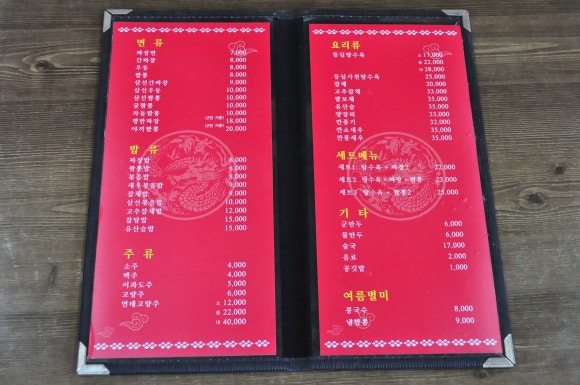 면 류
짜장면 7,000
간짜장 8,000
우동 8,000
짬뽕 8,000
삼선간짜장 9,000
삼선우동 10,000
삼선짬뽕 10,000
굴짬뽕 10,000
차돌짬뽕 10,000
쟁반짜장 (2인 기준) 18,000
야끼짬뽕 (2인 기준) 20,000
밥 류
짜장밥 8,000
짬뽕밥
볶음밥 8,000
새우볶음밥 9,000
잡채밥
삼선볶음밥 10,000
고추잡채밥 12,000
잡탕밥 15,000
유산슬밥 15,000
주 류
소주 4,000
맥주 4,000
이과도주 5,000
고량주 6,000
연태고량주 소 12,000
중 22,000
대 40,000
요리류
등심탕수육 소 17,000
중 22,000
대 28,000
등심사천탕수육 25,000
잡채 20,000
고추잡채 33,000
팔보채 35,000
유산슬 35,000
양장피 33,000
깐풍기 32,000
깐쇼새우 35,000
깐풍새우 35,000
세트메뉴
세트1 탕수육 + 짜장2 22,000
세트2 탕수육 + 짜장 + 짬뽕 23,000
세트3 탕수육 + 짬뽕2 25,000
기 타
군만두 6,000
물만두 6,000
술국 17,000
음료 2,000
공깃밥 1,000
여름별미
콩국수 8,000
냉짬뽕 9,000